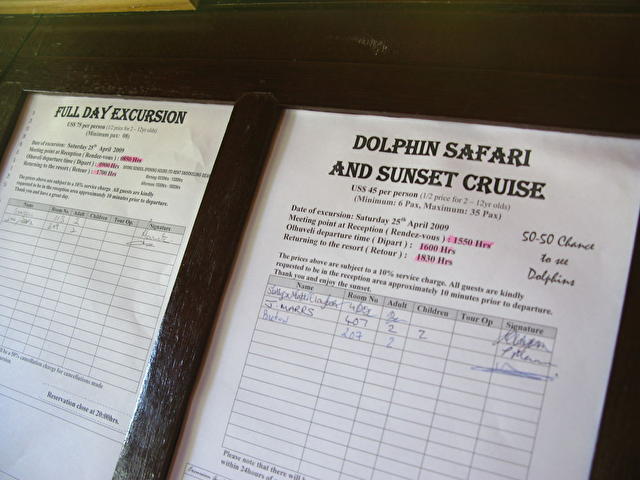 FULL DAY EXCURSION
US$ 75 per person (1/2 price for 2 – 12yr olds)
(Minimum pax: 08)
Date of excursion: Saturday 25th April 2009
Meeting point at Reception (Rendez-vous) : 0850 Hrs
Olhuveli departure time (Dipart) : 0900 Hrs
Returning to the resort (Retour) : 1700 Hrs
The prices above are subject to a 10% service charge. All guests are kindly
requested to be in the reception area approximately 10 minutes prior to departure.
Thank you and have a great day.
Name Room No Adult Children Tour Op Signature
be a 50% cancellation charge for cancellations made
Reservation close at 20:00hrs.
DOLPHIN SAFARI
AND SUNSET CRUISE
US$ 45 per person (1/2 price for 2 – 12yr olds)
(Minimum: 6 Pax, Maximum: 35 Pax)
Date of excursion: Saturday 25th April 2009
Meeting point at Reception (Rendez-vous) : 1550 Hrs
Olhuveli departure time (Dipart) : 1600 Hrs
Returning to the resort (Retour) : 1830 Hrs
50-50 Chance
to see
Dolphins
The prices above are subject to a 10% service charge. All guests are kindly
requested to be in the reception area approximately 10 minutes prior to departure.
Thank you and enjoy the sunset.
Name Room No Adult Children Tour Op Signature
2
J. MARRS 407 2 2
207 2
Please note that there will b
within 24hours of